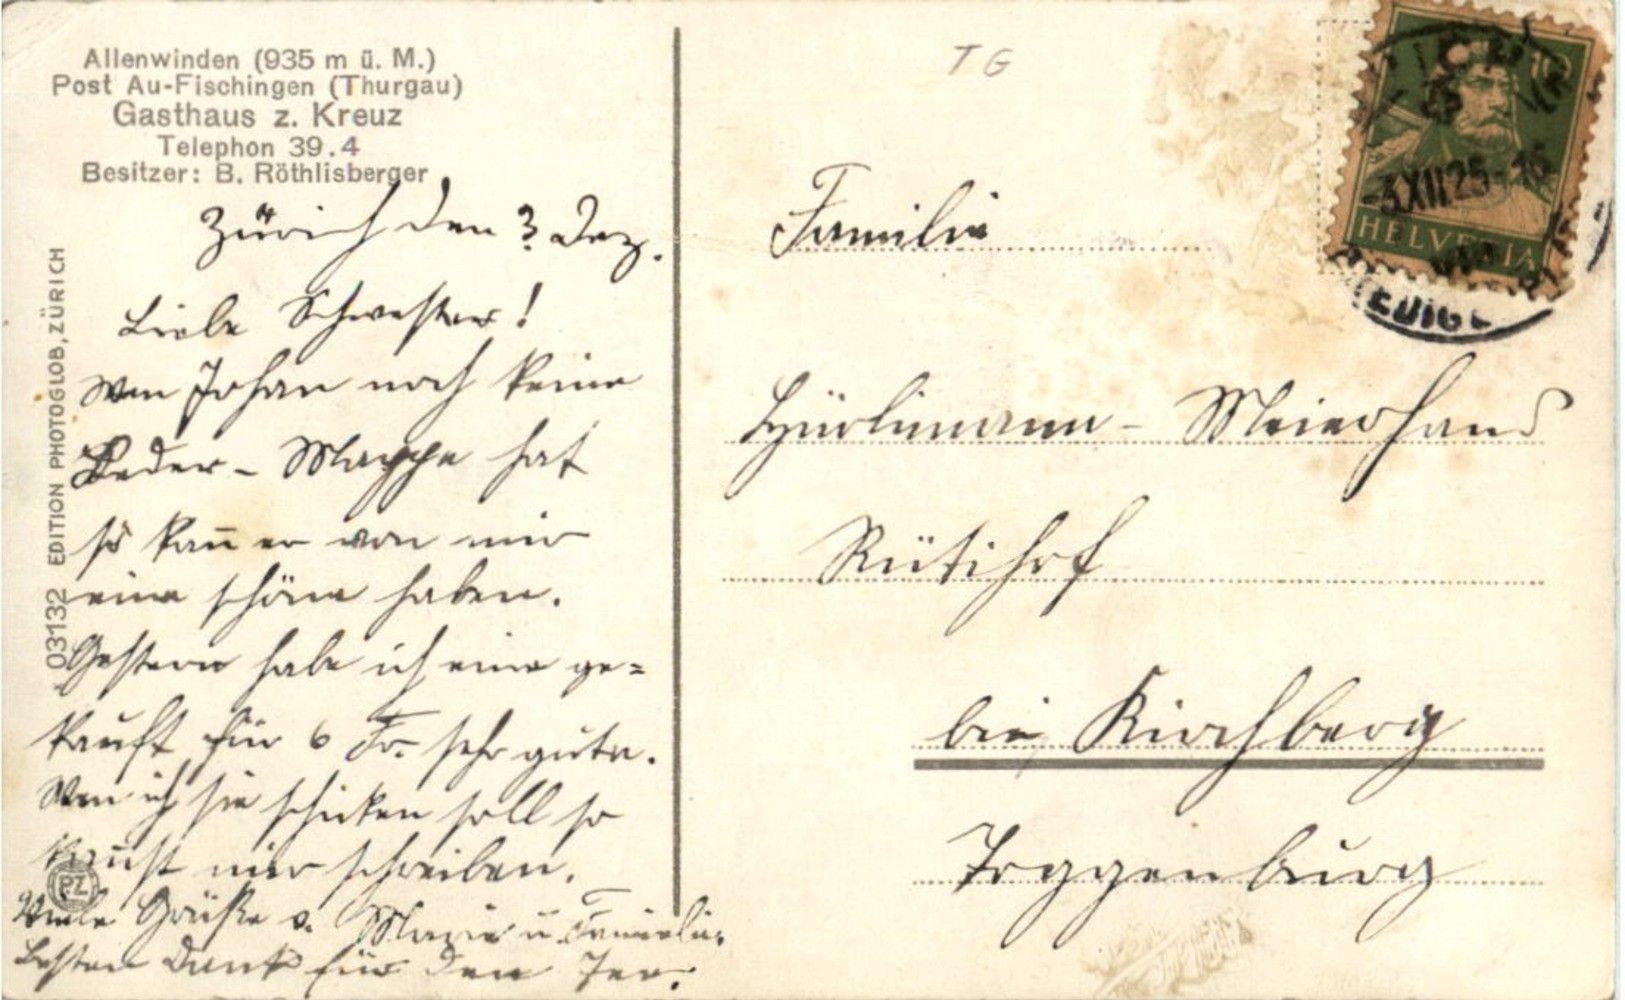 Allenwinden (935 m ü. M.)
Post Au-Fischingen (Thurgau)
Gasthaus z. Kreuz
Telephon 39.4
Besitzer: B. Röthlisberger
Zürich den 3. Dez.
Liebe Schwester!
Wen Johan noch keine
Leder-Mappe hat
so kan̄ er von mir
eine schöne haben.
Gestern habe ich eine ge=
kauft für 6 Fr. sehr gute.
Wen ich sie schicken soll so
kan̄st mir schreiben.
Viele Grüße v. Marie u Familie
besten Dank für den
03132 EDITION PHOTOGLOB, ZÜRICH
PZ
TG
-3.XII.25-16
HELVETIA
Familie
Hürlimann - Meierhans
Rütihof
bei Kirchberg
Toggenburg